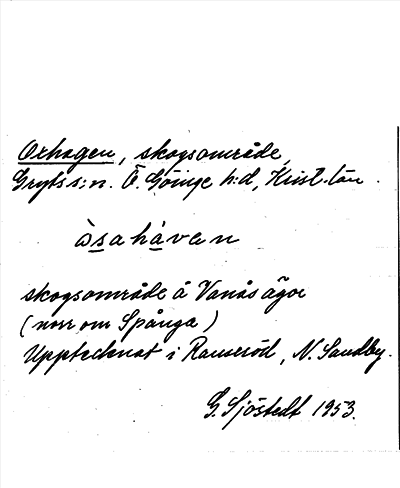 Oxhagen, skogsområde,
Gryts s:n. Ö. Göinge h:d, Krist. län.
àsahávan
skogsområde å Vanås ägor
(norr om Spånga)
Upptecknat i Ramseröd, N. Sandby.
G. Sjöstedt 1953.